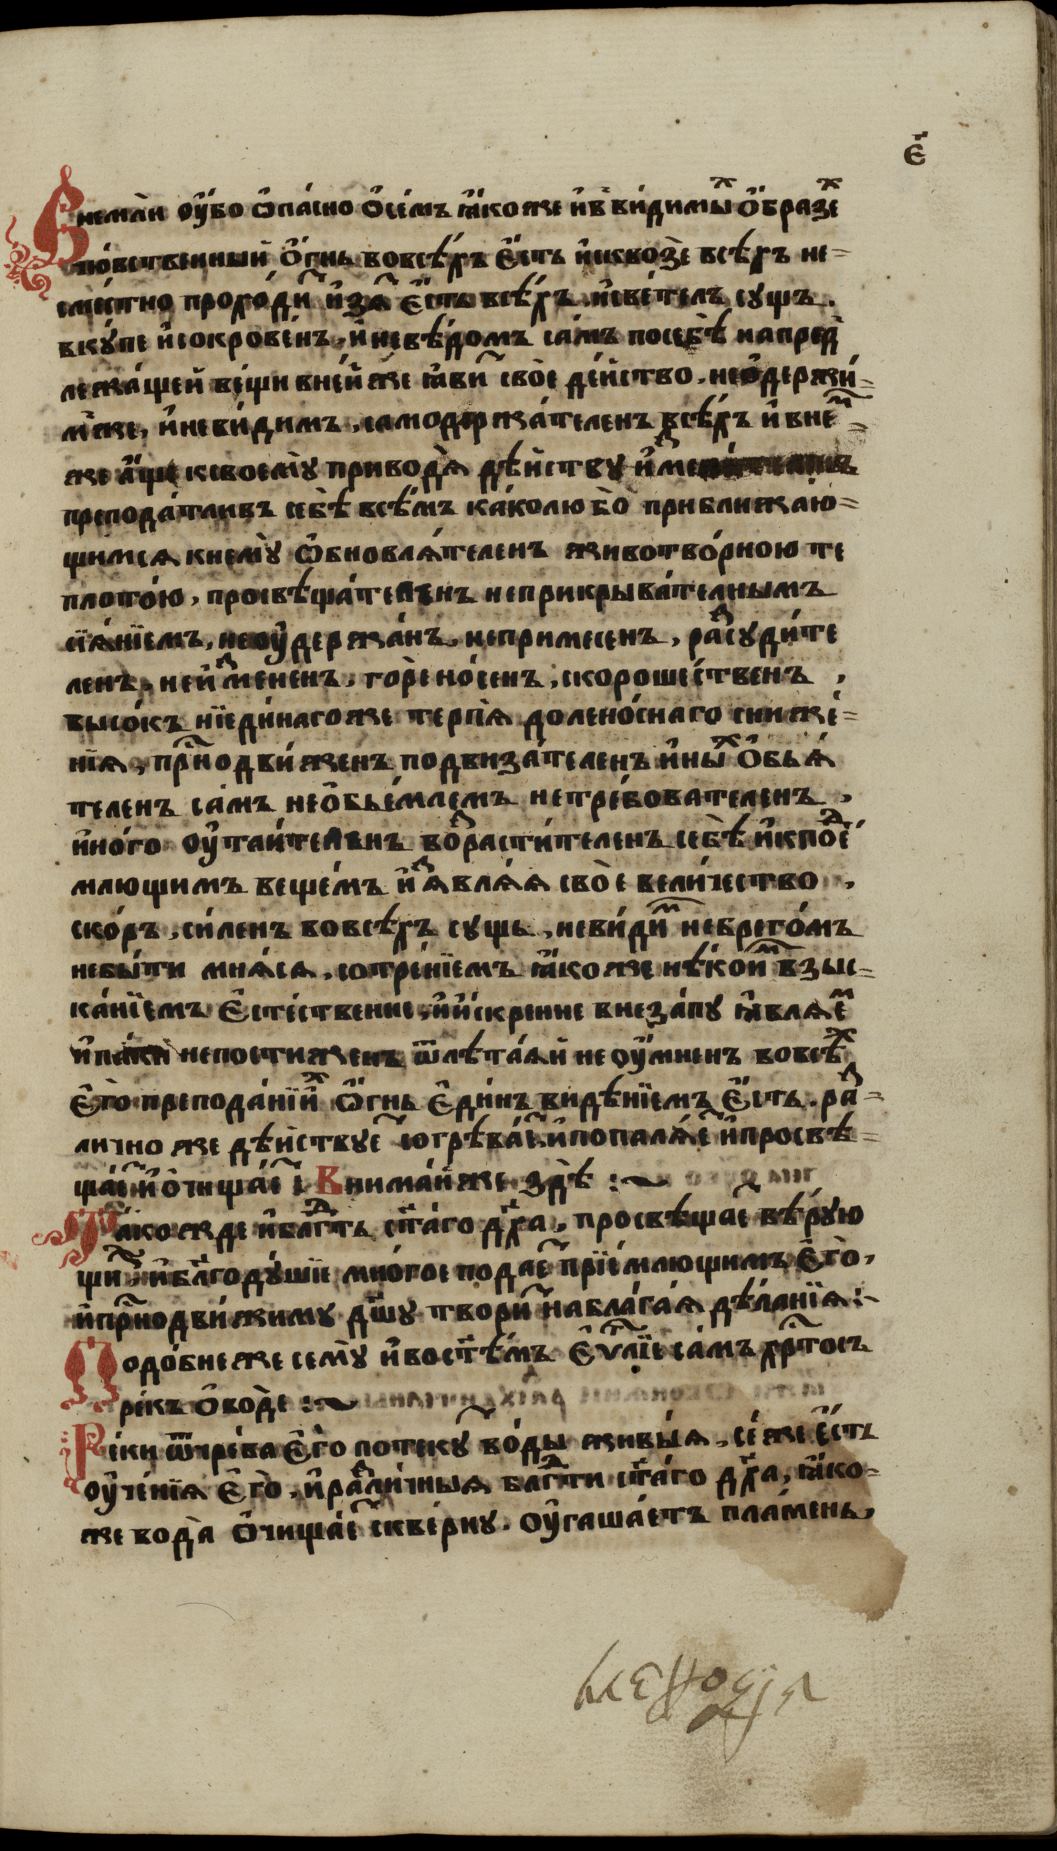 є҃
Внемли оу҆́бо ѻ҆па́сно ѻ҆се́мъ ꙗ҆́коже и҆в̾ви́димыⷯ ѻ҆́бразеⷯ
чю́вственный ѻ҆́гнь вовсѣ́хъ є҆́сть и҆сквозѐ всѣ́хъ не-
смѣ́стно прохо́диⷮ и҆з̾ѧⷮ є҆́сть всѣ́хъ. и҆свѣ́телъ сущъ.
вкꙋ́пе и҆сокрове́нъ, и҆невѣ́домъ са́мъ посебѣ̀ напреⷣ
лежа́щей ве́щи вне́йже ꙗ҆ви́ⷮ своѐ де́йство. неѻ҆держи́-
м̾же, и҆неви́димъ, самодержа́теленъ всѣ́хъ и҆внеⷨ-
же а҆́ще ксвоемꙋ̀ приводѧ̀ дѣ́йствꙋ и҆́ме
препода́тливъ себѣ̀ всѣ́мъ ка́колюбо̀ приближаю-
щимсѧ кнемꙋ̀ ѻ҆бновлѧ́теленъ животво́рною те
плото́ю, просвѣща́теленъ неприкрыва́телнымъ
сїѧ́нїемъ, неоу҆держа́нъ, непримесенъ, раⷥсꙋди́те
ленъ, неи҆ⷥмененъ, горѐно́сенъ, скорошественъ,
высо́къ нїеди́нагоже терпѧ̀ долено́снаго сниже́-
нїѧ, прⷭ҇нодви́женъ подвиза́теленъ и҆ныⷯ ѻ҆бьѧ́
теленъ са́мъ неѻ҆бье́млемъ нетре́бователенъ,
и҆но́го оу҆таи́теленъ воⷥрасти́теленъ себѣ̀ и҆кпоⷣе́
млющимъ веще́мъ и҆ⷥꙗвлѧ́ѧ своѐ вели́чество,
ско́ръ, си́ленъ вовсѣ́хъ сущь, неви́диⷨ небрего́мъ
небы́ти мнѧ́сѧ, сотре́нїемъ ꙗ҆́коже нѣ́коиⷨ взыс-
ка́нїемъ є҆сте́ственне, и҆и҆́скренне внеза́пꙋ ꙗ҆влѧ́еⷨ
и҆па́ки непости́женъ ѿлѣта́ѧй неоу҆́мненъ вовсѣⷯ
є҆го̀ препода́нїиⷯ ѻ҆́гнь є҆ди́нъ видѣ́нїемъ є҆́сть. раⷥ-
личноже дѣ́йствꙋеⷮ согрѣва́еⷮ и҆попалѧ́еⷮ и҆просвѣ-
ща́еⷮ и҆ѻ҆чища́еⷮ : Внима́йже здѣ̀ :~
Та́кожде и҆блгⷣть ст҃а́го дх҃а, просвѣща́еⷮ вѣ́рꙋю
щиⷯ, и҆бл҃годꙋ́шїе мно́гое подае́ⷮ прїе́млющимъ є҆го̀,
и҆прⷭ҇нодви́жимꙋ дш҃ꙋ твори́ⷮ наблага́ѧ дѣ́ланїѧ:~
Подо́бнеже семꙋ̀ и҆вост҃ѣ́мъ є҆ѵⷢ҇лїе са́мъ хрⷭ҇то́съ
ре́къ ѻ҆водѐ :~
Рѣ́ки ѿчре́ва є҆го̀ потекꙋ́ⷮ во́ды живы́ѧ, се́же є҆́сть
оу҆че́нїѧ є҆го̀, и҆раⷥли́чныѧ блгⷣти ст҃а́го дх҃а, ꙗ҆́ко-
же вода̀ ѻ҆чища́еⷮ скве́рнꙋ. оу҆гаша́етъ пла́мень,